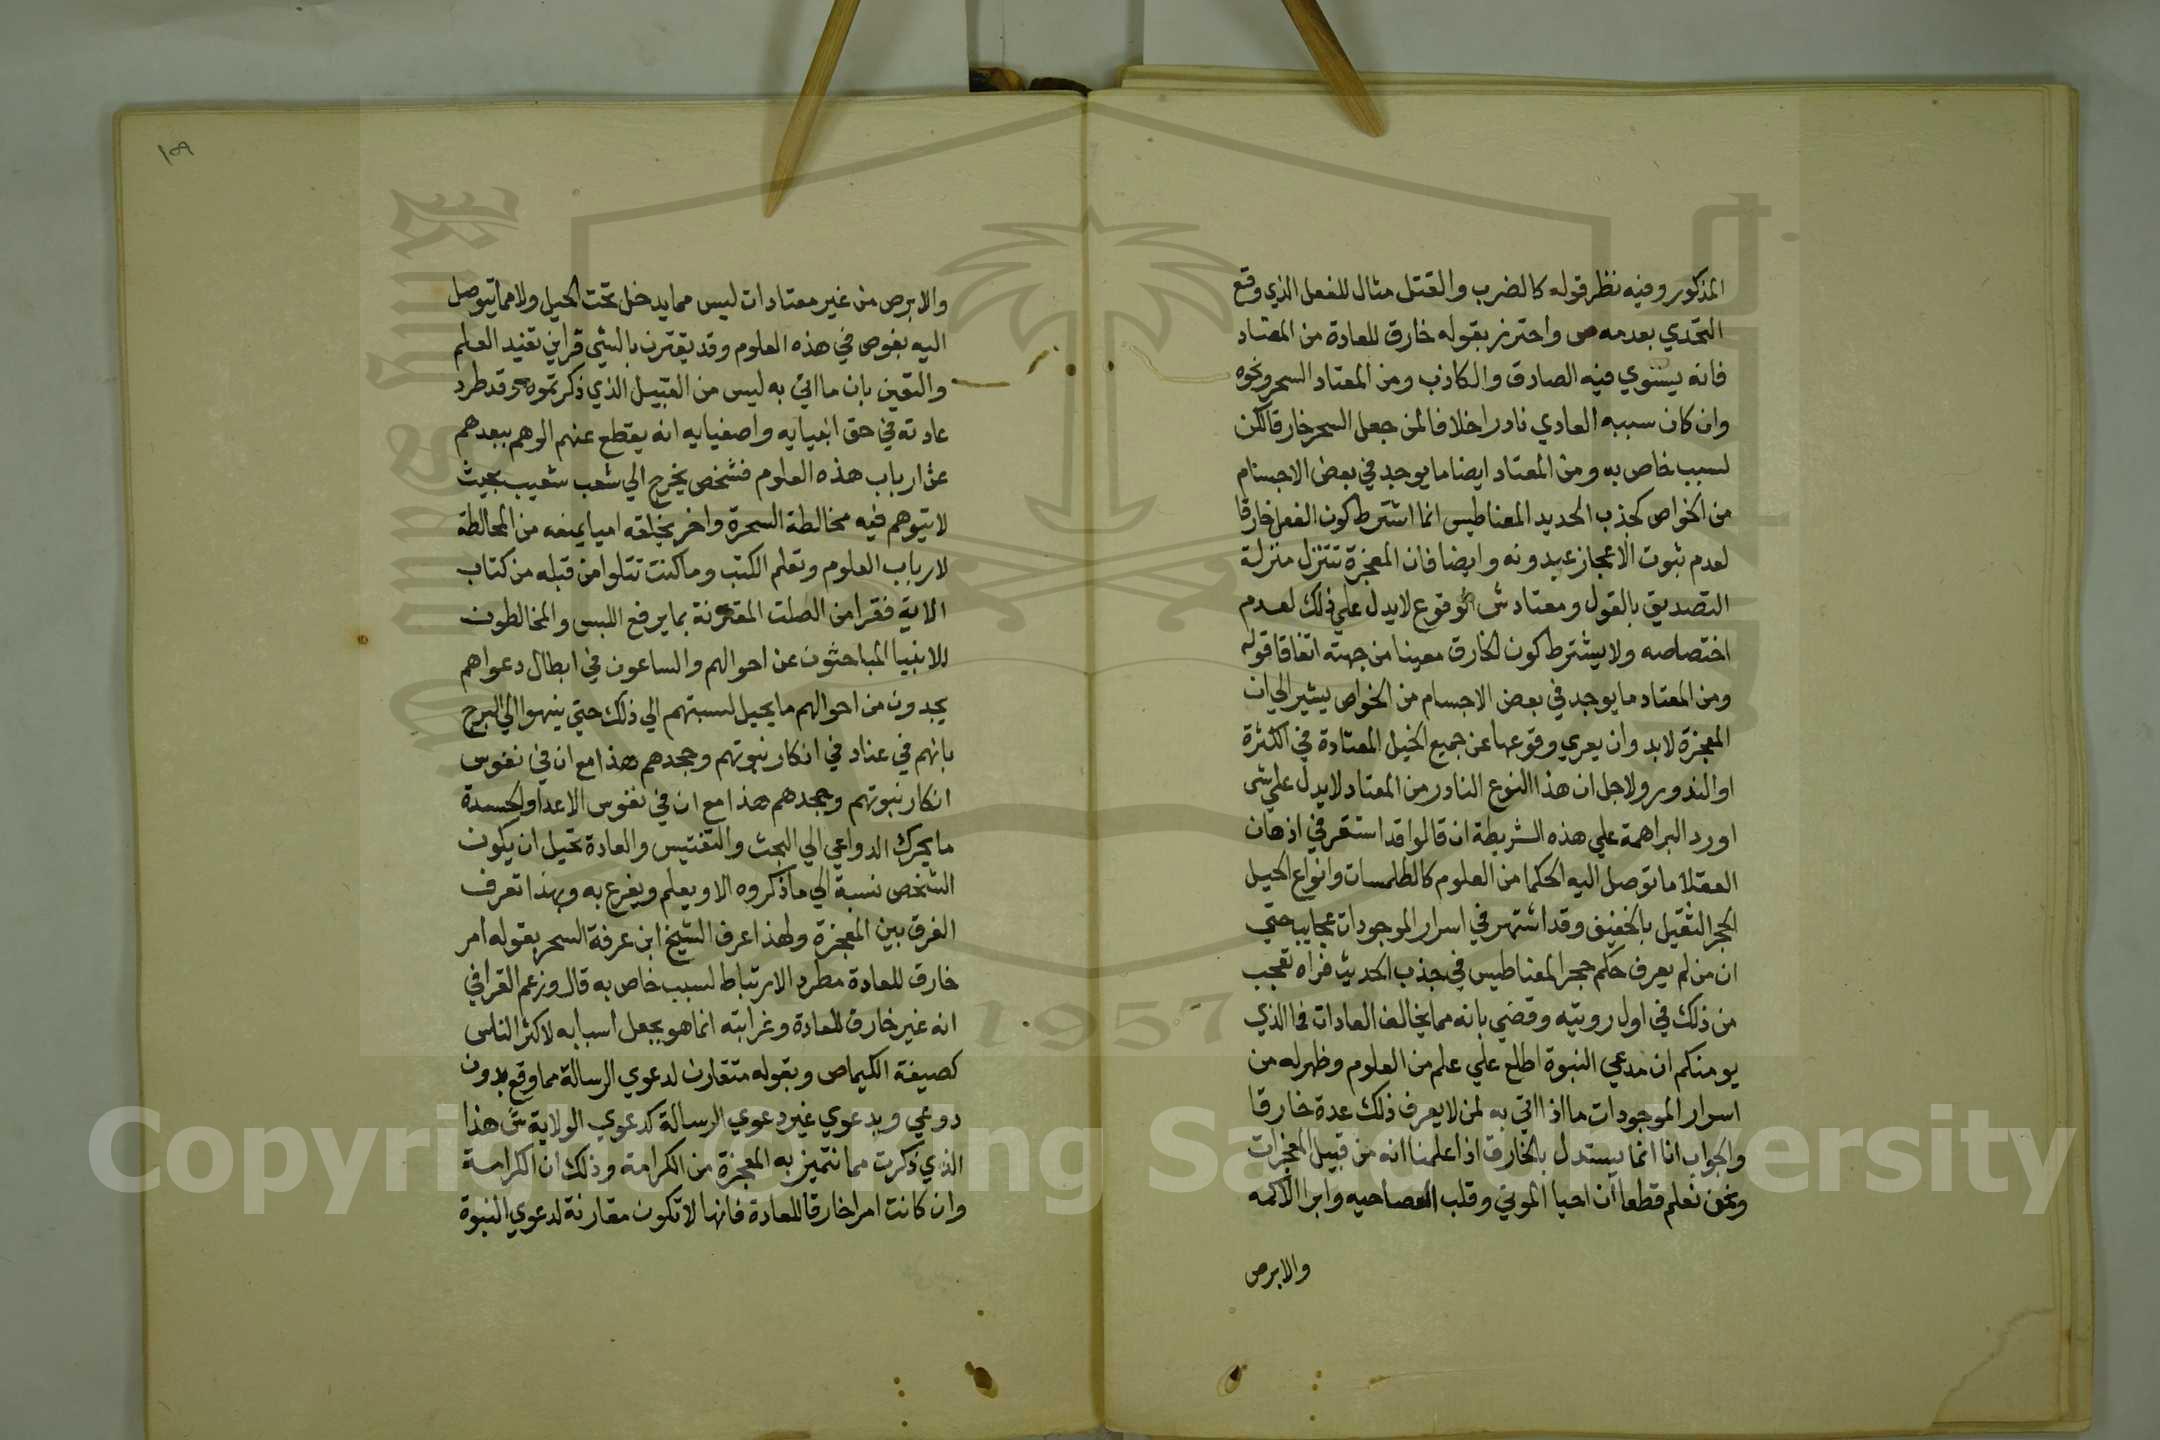 المذكور وفيه نظر قوله كالضرب والقتل مثال للفعل الذي وقع
التحدي بعدمه ص واحترز بقوله خارق للعادة من المعتاد
فانه يستوي فيه الصادق والكاذب ومن المعتاد السحر ونحوه
وان كان سببه العادي نادرا خلافا لمن جعل السحر خارقا لكن
لسبب خاص به ومن المعتاد ايضا ما يوجد في بعض الاجسام
من الخواص كجذب الحديد المعناطيس انما اشترط كون الفعل خارقا
لعدم ثبوت الاعجاز عبدونه وايضا فان المعجزة تتنزل منزلة
التصديق بالقول ومعتاد ش الوقوع لا يدل علي ذلك لعدم
اختصاصه ولا يشترط كون الخارق معينا من جهته اتفاقا قوله
ومن المعتاد ما يوجد في بعض الاجسام من الخواص يشير الي ان
المعجزة لابد وان يعري وقوعها عن جميع الخيل المعتادة في الكثرة
او الندور ولاجل ان هذا النوع النادر من المعتاد لا يدل علي شي
اورد البراهمة علي هذه الشريطة ان قالوا قد استقر في اذهان
العقلا ما توصل اليه الحكما من العلوم كالطلمسات وانواع الحيل
الحجر الثقيل بالخفيف وقد اشتهر في اسرار الموجودات عجايب حتي
ان من لم يعرف حكم حجر المعناطيس في جذب الحديث فراه تعجب
من ذلك في اول رويته وقضي بانه مما يخالف العادات فما الذي
يومنكم ان مدعي النبوة اطلع علي علم من العلوم وظهر له من
اسرار الموجودات ما اذا اتي به لمن لا يعرف ذلك عدة خارقا
والجواب انا انما يستدل بالخارق اذا علمنا انه من قبيل المعجزات
ونحن نعلم قطعا ان احيا الموتي وقلب العصا حيه وابرا الاكمه
والابرص
١٥٩
والابرص من غير معتادات ليس مما يدخل تحت الحيل ولا مما يتوصل
اليه بغوص في هذه العلوم وقد يقترن بالشي قراين تفيد العلم
والتقين بان ما اتي به ليس من القبيل الذي ذكرتموه وقد طرد
عادته في حق انبيايه واصفيايه انه يقطع عنهم الوهم ببعدهم
عن ارباب هذه العلوم فشخص يخرج الي شعب شعيب بحيث
لا يتوهم فيه مخالطة السحرة واخر يخلقه اميا يمنعه من المخالطة
لارباب العلوم وتعلم الكتب وما كنت تتلوا من قبله من كتاب
الاية فقرا من الصلت المقترنة بما يرفع اللبس والمخالطون
للانبيا المباحثون عن احوالهم والساعون في ابطال دعواهم
يجدون من احوالهم ما يحيل لسبتهم الي ذلك حتي ينهوا الي البرح
بانهم في عناد في انكار نبوتهم وجحدهم هذا مع ان في نفوس
انكار نبوتهم وجحدهم هذا مع ان في نفوس الاعدا والحسدة
ما يحرك الدواعي الي البحث والتفتيس والعادة تحيل ان يكون
الشخص نسبة الي ما ذكروه الا ويعلم ويفرع به وبهذا تعرف
الفرق بين المعجزة ولهذا عرف الشيخ ابن عرفة السحر بقوله امر
خارق للعادة مطرد الارتباط لسبب خاص به قال وزعم القرافي
انه غير خارق للعادة وغرابته انما هو بجعل اسبابه لاكثر الناس
كصيفة الكيما ص وبقوله متقارن لدعوي الرسالة مما وقع بدون
دوعي وبدعوي غير دعوي الرسالة كدعوي الولاية ش هذا
الذي ذكرت مما تتميز به المعجزة من الكرامة وذلك ان الكرامة
وان كانت امرا خارقا للعادة فانها لا تكون مقارنة لدعوي النبوة
1957
Copyright © King Saud University